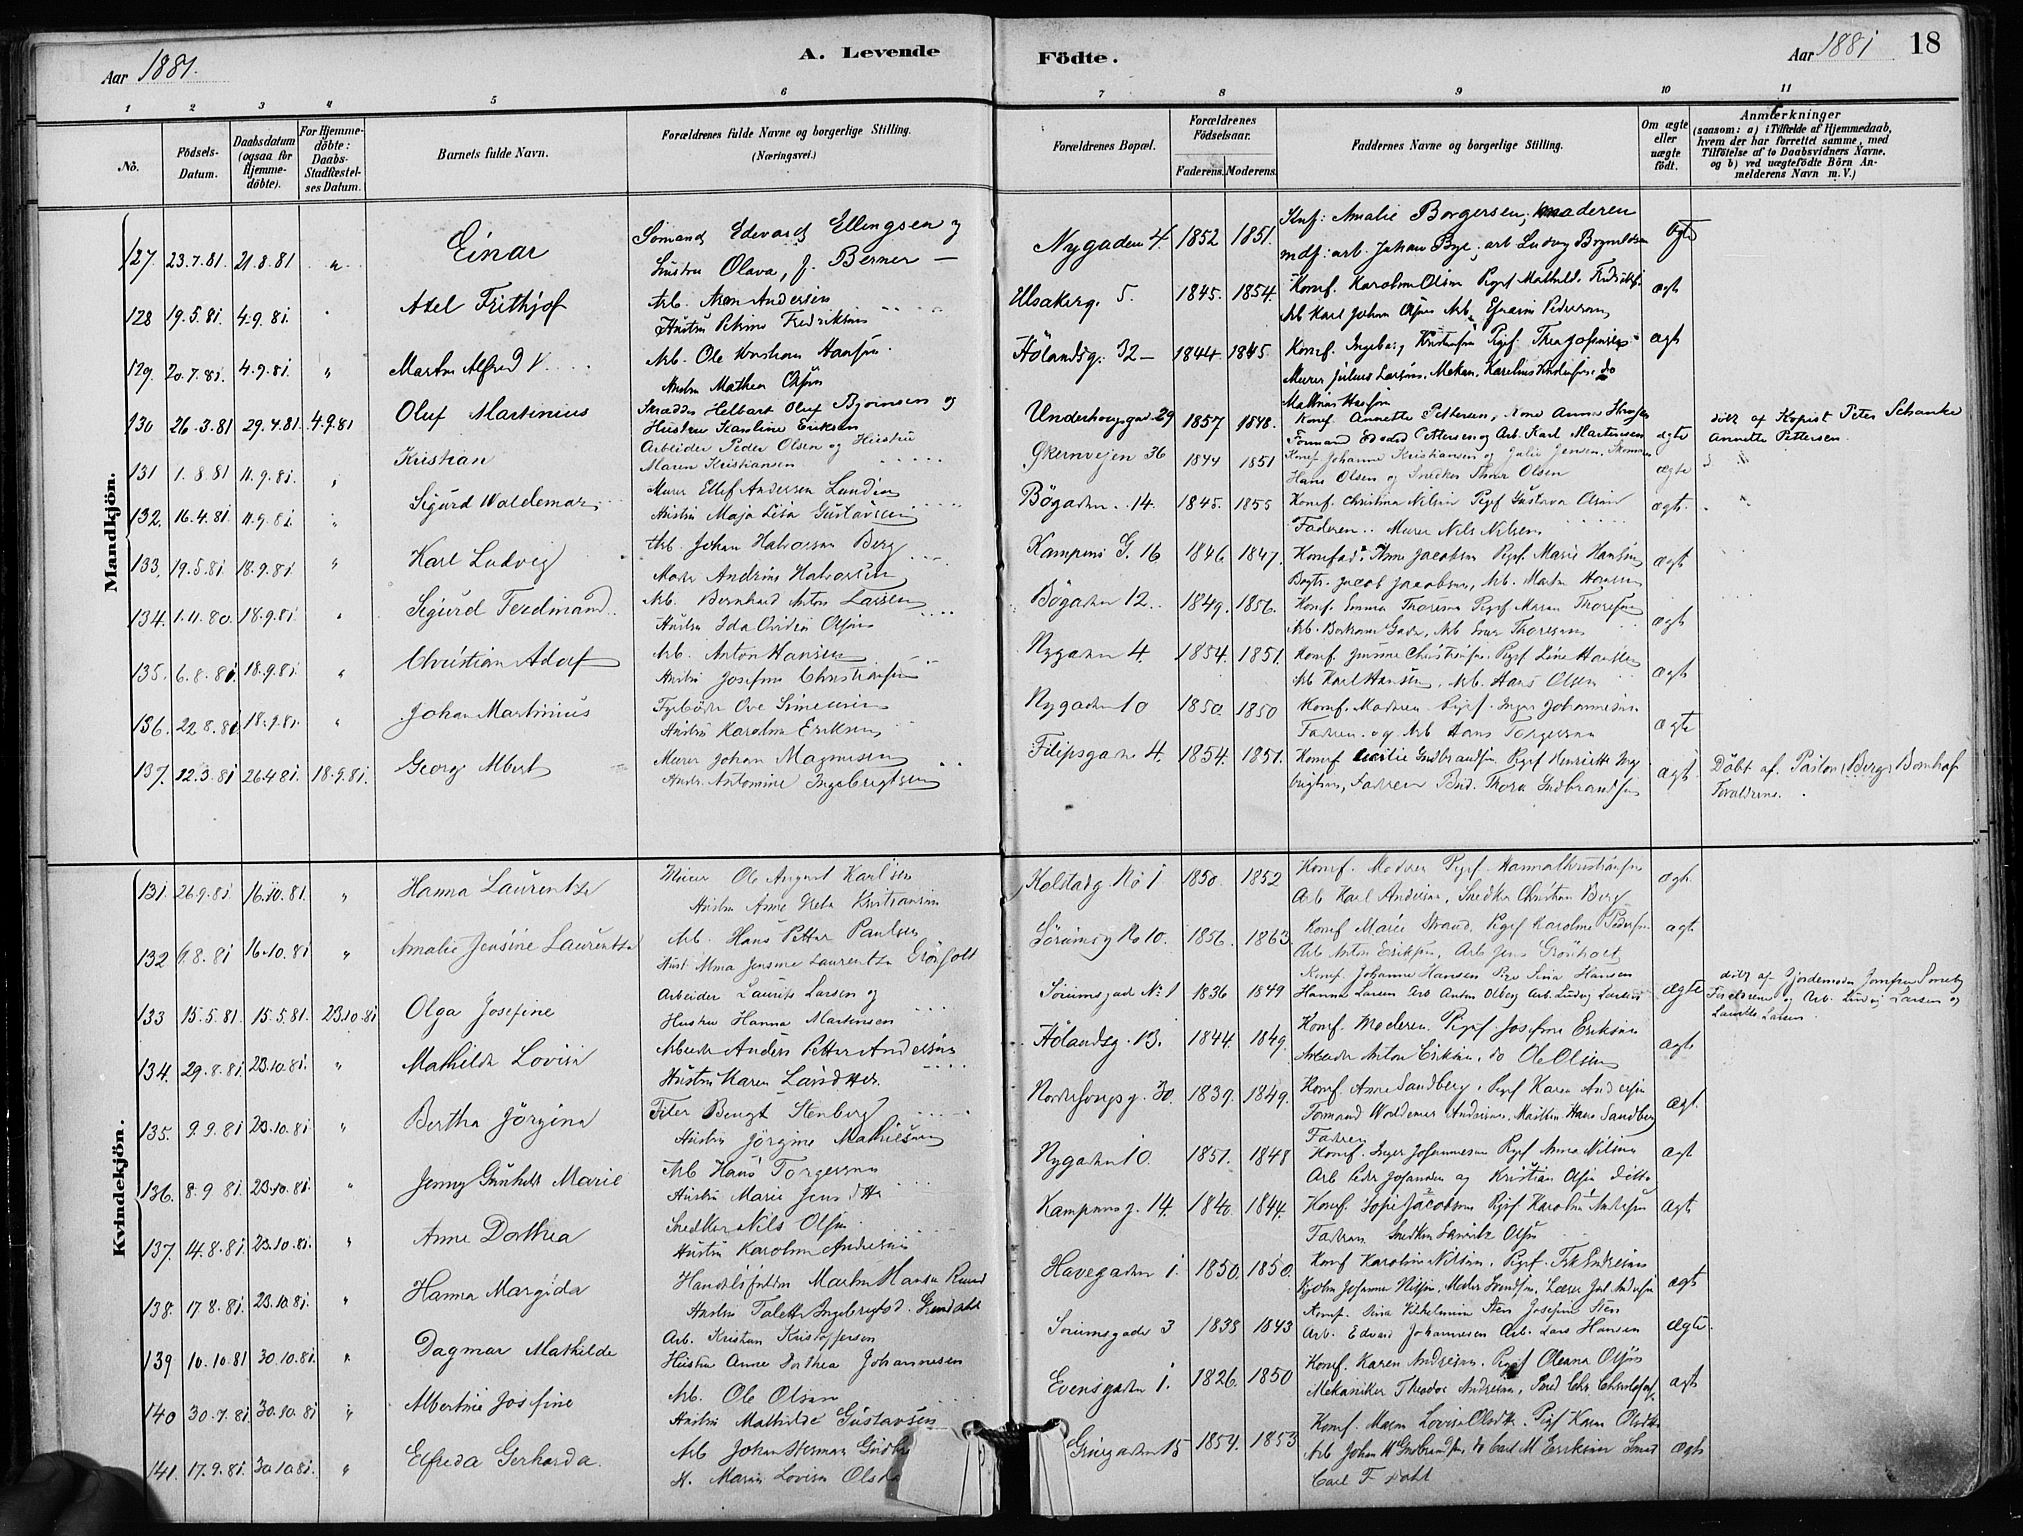 Aar 1881.
A. Levende
Födte.
Aar 1881
18
1 2 3 4 5 6 7 8 9 10 11
No.
Födsels-Datum.
Daabsdatum (ogsaa for Hjemmedöbte).
For Hjemmedöbte: Daabs-Stadfæstelses Datum.
Barnets fulde Navn.
Forældrenes fulde Navne og borgerlige Stilling.
(Næringsvei.)
Forældrenes Bopæl.
Forældrenes Födselsaar.
Faderens. Moderens.
Faddernes Navne og borgerlige Stilling.
Om ægte eller uægte födt.
Anmærkninger
(saasom: a) i Tilfælde af Hjemmedaab, hvem der har forrettet samme, med Tilföielse af to Daabsvidners Navne, og b) ved uægtefödte Börn Anmelderens Navn m. V.)
Mandkjön.
127. 23.7.81 21.8.81 " Einar
Sömand Edevard Ellingsen og
Hustru Olava, f. Berner
Nygaden 4 1852 1851.
Amalie Borgersen, Moderen
arb. Johan Bye, arb Ludvig
128 19.5.81. 4.9.81. Axel Frithjof
Arb. Aron Andersen
Hustru Petrine Fredriksen
5. 1845. 1854.
Konef. Karoline Olsen Pigef Mathilde
Arb Karl Johan Olsen Arb. Pedersen
ægte
129. 20.7.81. 4.9.81. " Martin Alfred V.
Arb. Ole Kristian Hansen.
Hustru Mathea Olsen
Hölandsg. 32 1844 1845.
Konef. Ingeborg Kristiansen Pigef. Thea Johnsen
Murer Julius Larsen. Mekan. Karelius do
Mathias Hansen
ægt
130 26.3.81 29.4.81 4.9.81 Oluf Martinius
Skrædder Helbart Oluf Bjornsen og
Hustru Karoline Eriksen
29 1857 1848.
Konef. Annette Pettersen, Kone Anna
Formand Edvard Pettersen og Arb. Karl Martinsen
ægte
döbt af Kopist Peter Schanke
Annette Pettersen.
131 1.8.81 11.9.81. Kristian
Arbeider Peder Olsen og Hustru
Maren Kristiansen
Økernvejen 36 1844 1851
Konef Johanne Kristiansen og Julie Jensen.
Hans Olsen og Snedker Thor Olsen
ægte
132. 16.4.81. 11.9.81. " Sigurd Waldemar
Murer Ellef Andersen Lundin
Hustru Maja Lisa Gustavsen
Bögaden 14. 1845. 1855
Konef. Christina Nilsen Pigef Gustava Olsen
Faderen.. Murer Nils Nilsen
ægte.
133. 19.5.81 18.9.81 " Karl Ludvig
Arb. Johan Halvorsen Berg
Andrine Halvorsen
Kampens G. 16 1846 1847.
Anne Jacobsen Pigef. Marie Hansen
Jacob Jacobsen, Arb. Martin Hansen
ægt
134. 1.11.80. 18.9.81. Sigurd Ferdinand
Arb. Bernhard Anton Larsen
Hustru Ida Olsen
Bögaden 12.. 1849. 1856.
Konef. Emma Thoresen Pigef Maren Thoresen
Thoresen
ægt
135. 6.8.81. 18.9.81. " Christian Adolf
Arb. Anton Hansen
Hustru Josefine Christiansen
Nygaden 4. 1854. 1851.
Konef. Jensine Christiansen. Pigef. Line Hansen
Arb Karl Hansen. Arb. Hans Olsen
ægt
136. 22.8.81 18.9.81. " Johan Martinius
Fyrböder Ove Simensen
Hustru Karoline Eriksen
Nygaden 10 1850. 1850
Konef. Moderen Pigef. Inger Johannesen
Faderen. og Arb Hans Torgersen
ægte
137. 12.3.81 26.4.81. 18.9.81. Georg Albert
Murer Johan Magnussen
Hustr. Antomine Ingebrigtsen
Filipsgaden 4. 1854. 1851.
Konef Cecilie Gulbrandsen. Pigef Henriette
Faderen Thora Gulbrandsen
ægt.
Döbt af. Pastor Berg,
Forældrene.
Kvindekjön.
131. 26.9.81 16.10.81 " Hanna Laurentze
Murer Ole August Karlsen
Hustru Anne Kristiansen
Kolstadg. No 1 1850. 1852
Konef. Moderen Pigef. Hanna Kristiansen
Arb Karl Andersen, Snedker Christian Berg
ægt.
132 6.8.81 16.10.81 " Amalie Jensine Laurentza
Arb. Hans Petter Paulsen
Hust Alma Jensine Laurentza Grönholt
Sörumsg No 10. 1856. 1863.
Konef Marie Strand. Pigef Karoline Pedersen
Arb Anton Eriksen, Arb Jens Grönholt
ægt
133 15.5.81. 15.5.81. 23.10.81 Olga Josefine
Arbeider Laurits Larsen og
Hustru Hanna Martinsen
Sörumsgade No 1 1836 1849
Konef. Johanne Hansen Pige Lina Hansen
Hanna Larsen Arb Anton Olberg Arb. Ludvig Larsen
ægte
döbt af Gjordemoder Jomfru
Forældrene og Arb. Ludvig Larsen og
Laurits Larsen.
134. 29.8.81. 23.10.81. " Mathilde Lovise
Arbeider Anders Petter Andersen
Hustru Karen Larsdtter.
Hölandsg. 13. 1844. 1849.
Konef. Moderen. Pigef. Josefine Eriksen
Arbeider Anton Eriksen, do Ole Olsen
ægt
135. 9.9.81 23.10.81. " Bertha Jörgine
Filer Bengt Stenberg
Hustru Jörgine Mathiesen
30. 1839. 1849.
Konef. Anne Sandberg. Pigef Karen Andersen
Formand Waldemar Andersen, Hans Sandberg
Faderen
ægt.
136. 8.9.81. 23.10.81. " Jenny Gunhild Marie
Arb Hans Torgersen
Hustru Marie Jensdtter
Nygaden 10. 1851. 1848
Konef. Inger Johannesen Pigef Anna Nilsen
Arb Peder Johansen og Kristian Olsen ditto
ægt
137. 14.8.81 23.10.81. " Anne Dorthea
Snedker Nils Olsen
Hustru Karoline Andersen
Kampensg. 14. 1840. 1844.
Konef. Sofie Jacobsen Pigef Karoline Andersen
Faderen Snedker Henrik Olsen
ægt
138. 17.8.81. 23.10.81. " Hanna Margida
Martin Hansen Rund
Hustru Talette Ingebrigtsd.
Havegaden 1. 1850. 1850.
Konef Karoline Nilsen, Pigef. Andersen
Johannes Nilsen,
ægt
139 10.10.81 30.10.81. " Dagmar Mathilde
Arb. Kristian Kristoffersen
Hustru Anne Dorthea Johannesen
Sörumsgade 3 1838 1843
Konef. Lina Vilhelmine Sten Josefine Sten
Arb. Edvard Johannesen Arb. Lars Hansen
ægte.
140 30.7.81. 30.10.81 " Albertine Josefine
Arb. Ole Olsen
Hustru Mathilde Gustavsen
Evensgaden 1. 1826. 1850
Konef. Karen Andersen, Pigef Oleana Olsen
Mekaniker Theodor Andersen,
ægt
141. 17.9.81. 30.10.81. " Elfreda Gerharda.
Arb Johan Herman
H. Maren Lovise
15 1854. 1853
Konef. Maren Lovise Olsdtter. Pigef Karen Olsdtter
Arb Johan do Carl M Eriksen
Carl F Dahl
ægte